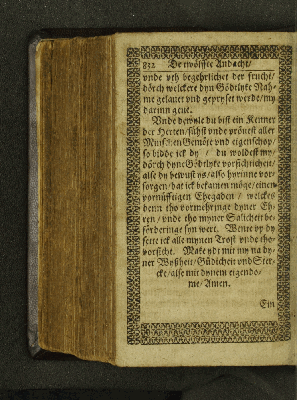 832 De twölffte Andacht/
vnde vth begehrlicher der frucht/
dörch welckere dyn Gödtlyke Nah-
me gelauet vnd gepryset werde/my
darinn geue.
Vnde dewyle du bist ein Kenner
der Herten/sühst vnde prövest aller
Minschen Gemöte vnd eigenschop/
so bidde ick dy / du woldest my/
dörch dyne Gödtlyke vorsichticheit/
alse dy bewust ys/also hyrinne vor-
sorgen/dat ick bekamen möge/einen
vornüfftigen Ehegaden / welckes
denn tho vormehringe dyner Eh-
ren/vnde tho myner Salicheit be-
förderinge syn wert. Wente vp dy
sette ick alle mynen Trost vnde tho-
vorsicht. Make ydt mit my na dy-
ner Wyßheit/Güdicheit vnd Ster-
cke/alse mit dynem eigendo-
me/Amen.
Ein